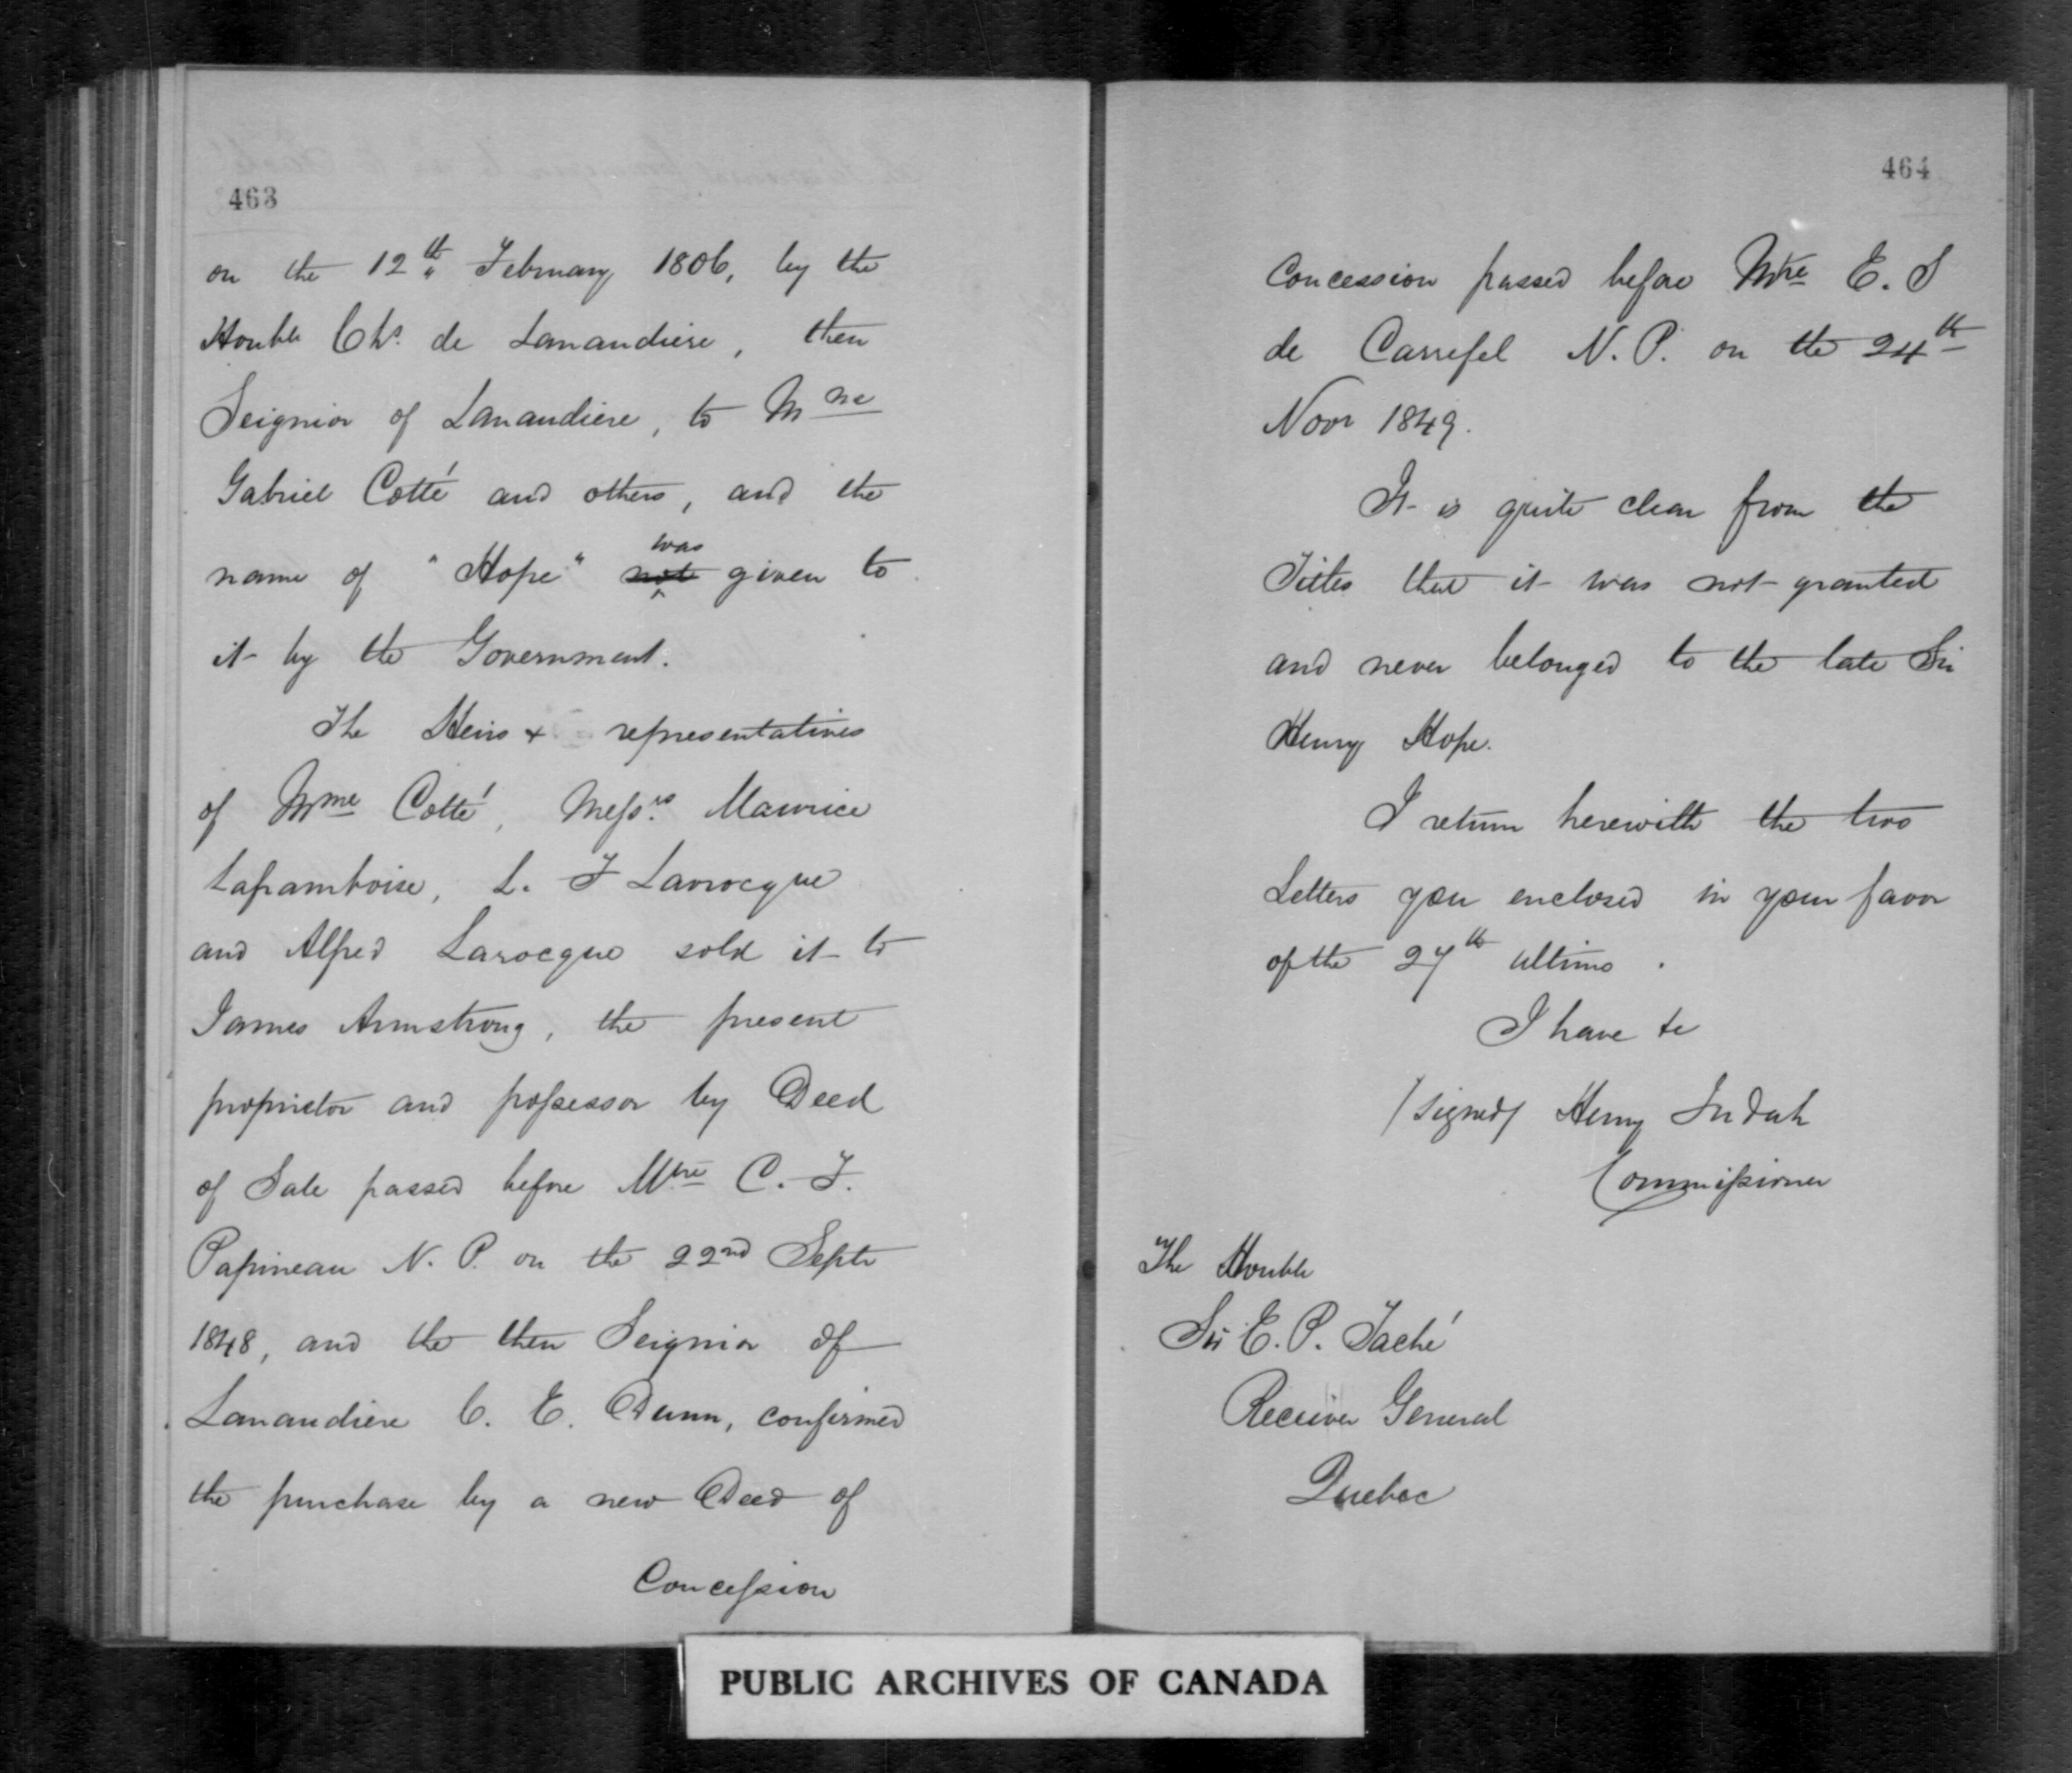 463
on the 12th February 1806, by the
Honble Chs. de Lanaudiere, then
Seignior of Lanaudiere, to Mme
Gabriel Cotté and others, and the
name of "Hope" not was given to
it by the Government.
The Heirs & representatives
of Mme Cotté, Messrs. Maurice
Laframboise, L. F Larrocque
and Alfred Larocque sold it to
James Armstrong, the present
proprietor and possessor by Deed
of Sale passed before Mtre C. F.
Papineau N. P. on the 22nd Septr
1848, and the then Seignior of
Lanaudiere C. E. Dunn, confirmed
the purchase by a new Deed of
Concession
464
Concession passed before Mtre E. S
de Carrefel N. P. on the 24th
Novr 1849.
It is quite clear from the
Titles that it was not granted
and never belonged to the late Sir
Henry Hope.
I return herewith the two
Letters you enclosed in your favor
of the 27th ultimo.
I have &c
/signed/ Henry Judah
Commissioner
The Honble
Sir E. P. Taché
Receiver General
Quebec
PUBLIC ARCHIVES OF CANADA